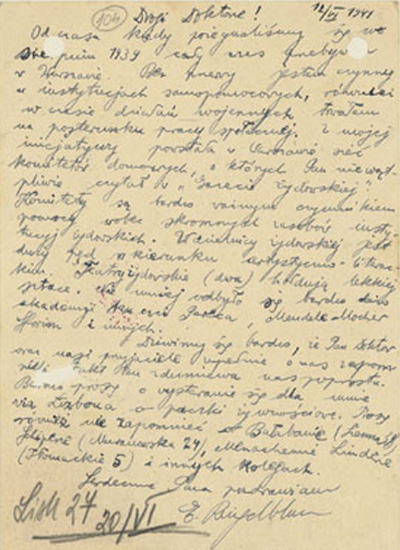 104 Drogi Doktorze! 12/VI 1941
Od czasu kiedy pożegnaliśmy się we
1939 cały czas przebywam
w Warszawie. Bez przerwy jestem czynny
w instytucjach samopomocowych, również
w czasie działań wojennych trwałem
na posterunku pracy społecznej. Z mojej
inicjatywy powstała w Warszawie sieć
komitetów domowych, o których Pan niewąt-
pliwie czytał w „Gazecie Żydowskiej".
Komitety są bardzo ważnym czynnikiem
pomocy wobec skromnych zasobów insty-
tucji żydowskich. W dzielnicy żydowskiej jest
duży pęd w kierunku artystyczno-literac-
kim. Teatry żydowskie (dwa) hołdują lekkiej
sztuce. Nie mniej odbyło się bardzo dużo
akademji ku czci Pereca, Mendele Mocher
Sforim i innych.
Dziwimy się bardzo, że Pan Doktor
oraz nasi przyjaciele zupełnie o nas zapom-
nieli. Fakt ten zdumiewa nas poprostu.
Bardzo proszę o wystaranie się dla mnie
via Lizbona o paczki żywnościowe. Proszę
również nie zapomnieć o Bałabanie
(Muranowska 24), Menachemie Linderze
(Tłomackie 5) i innych kolegach.
Serdecznie Pana pozdrawiam
E. Ringelblum
27
20/VI